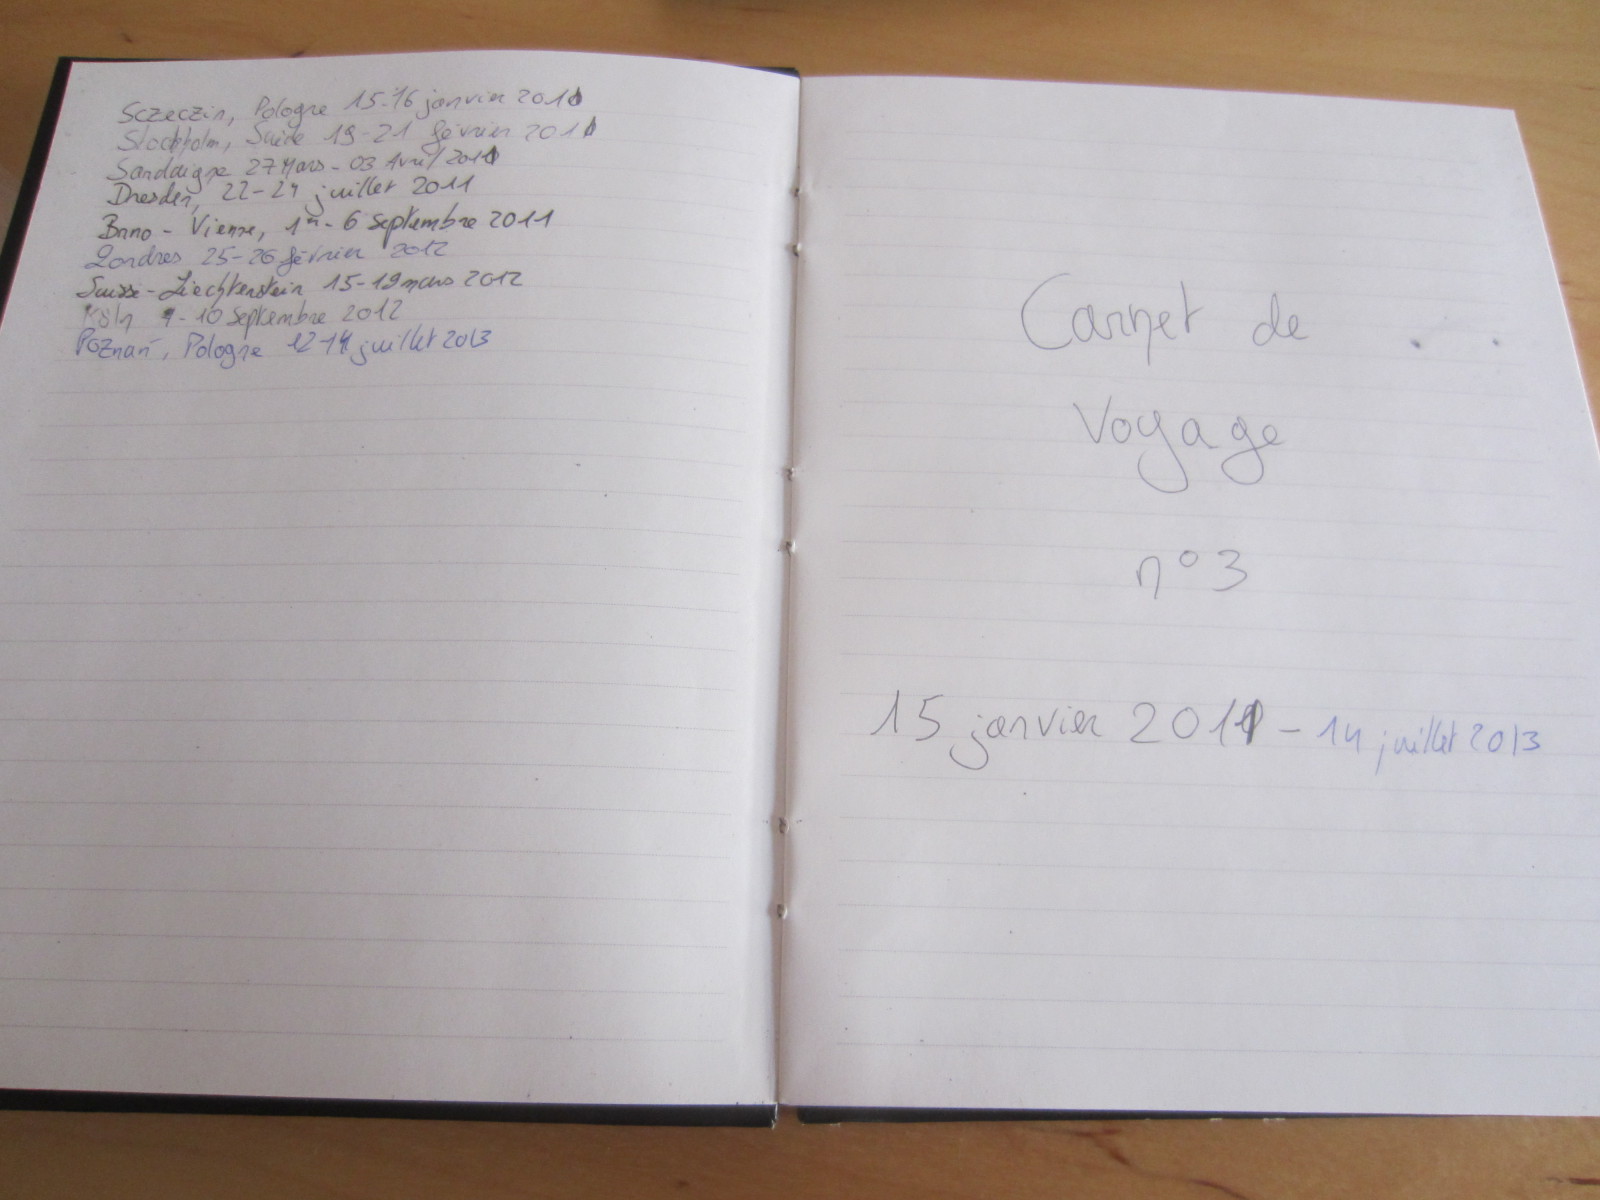 Sczeczin, Pologne 15-16 janvier 2011
Stockholm, Suède 19-21 février 2011
Sardaigne 27 Mars - 03 Avril 2011
Dresden, 22-24 juillet 2011
Brno - Vienne, 1er - 6 septembre 2011
Londres 25-26 février 2012
Suisse - Liechtenstein 15-19 mars 2012
Köln 9-10 septembre 2012
Poznań, Pologne 12-14 juillet 2013
Carnet de
Voyage
n°3
15 janvier 2011 - 14 juillet 2013